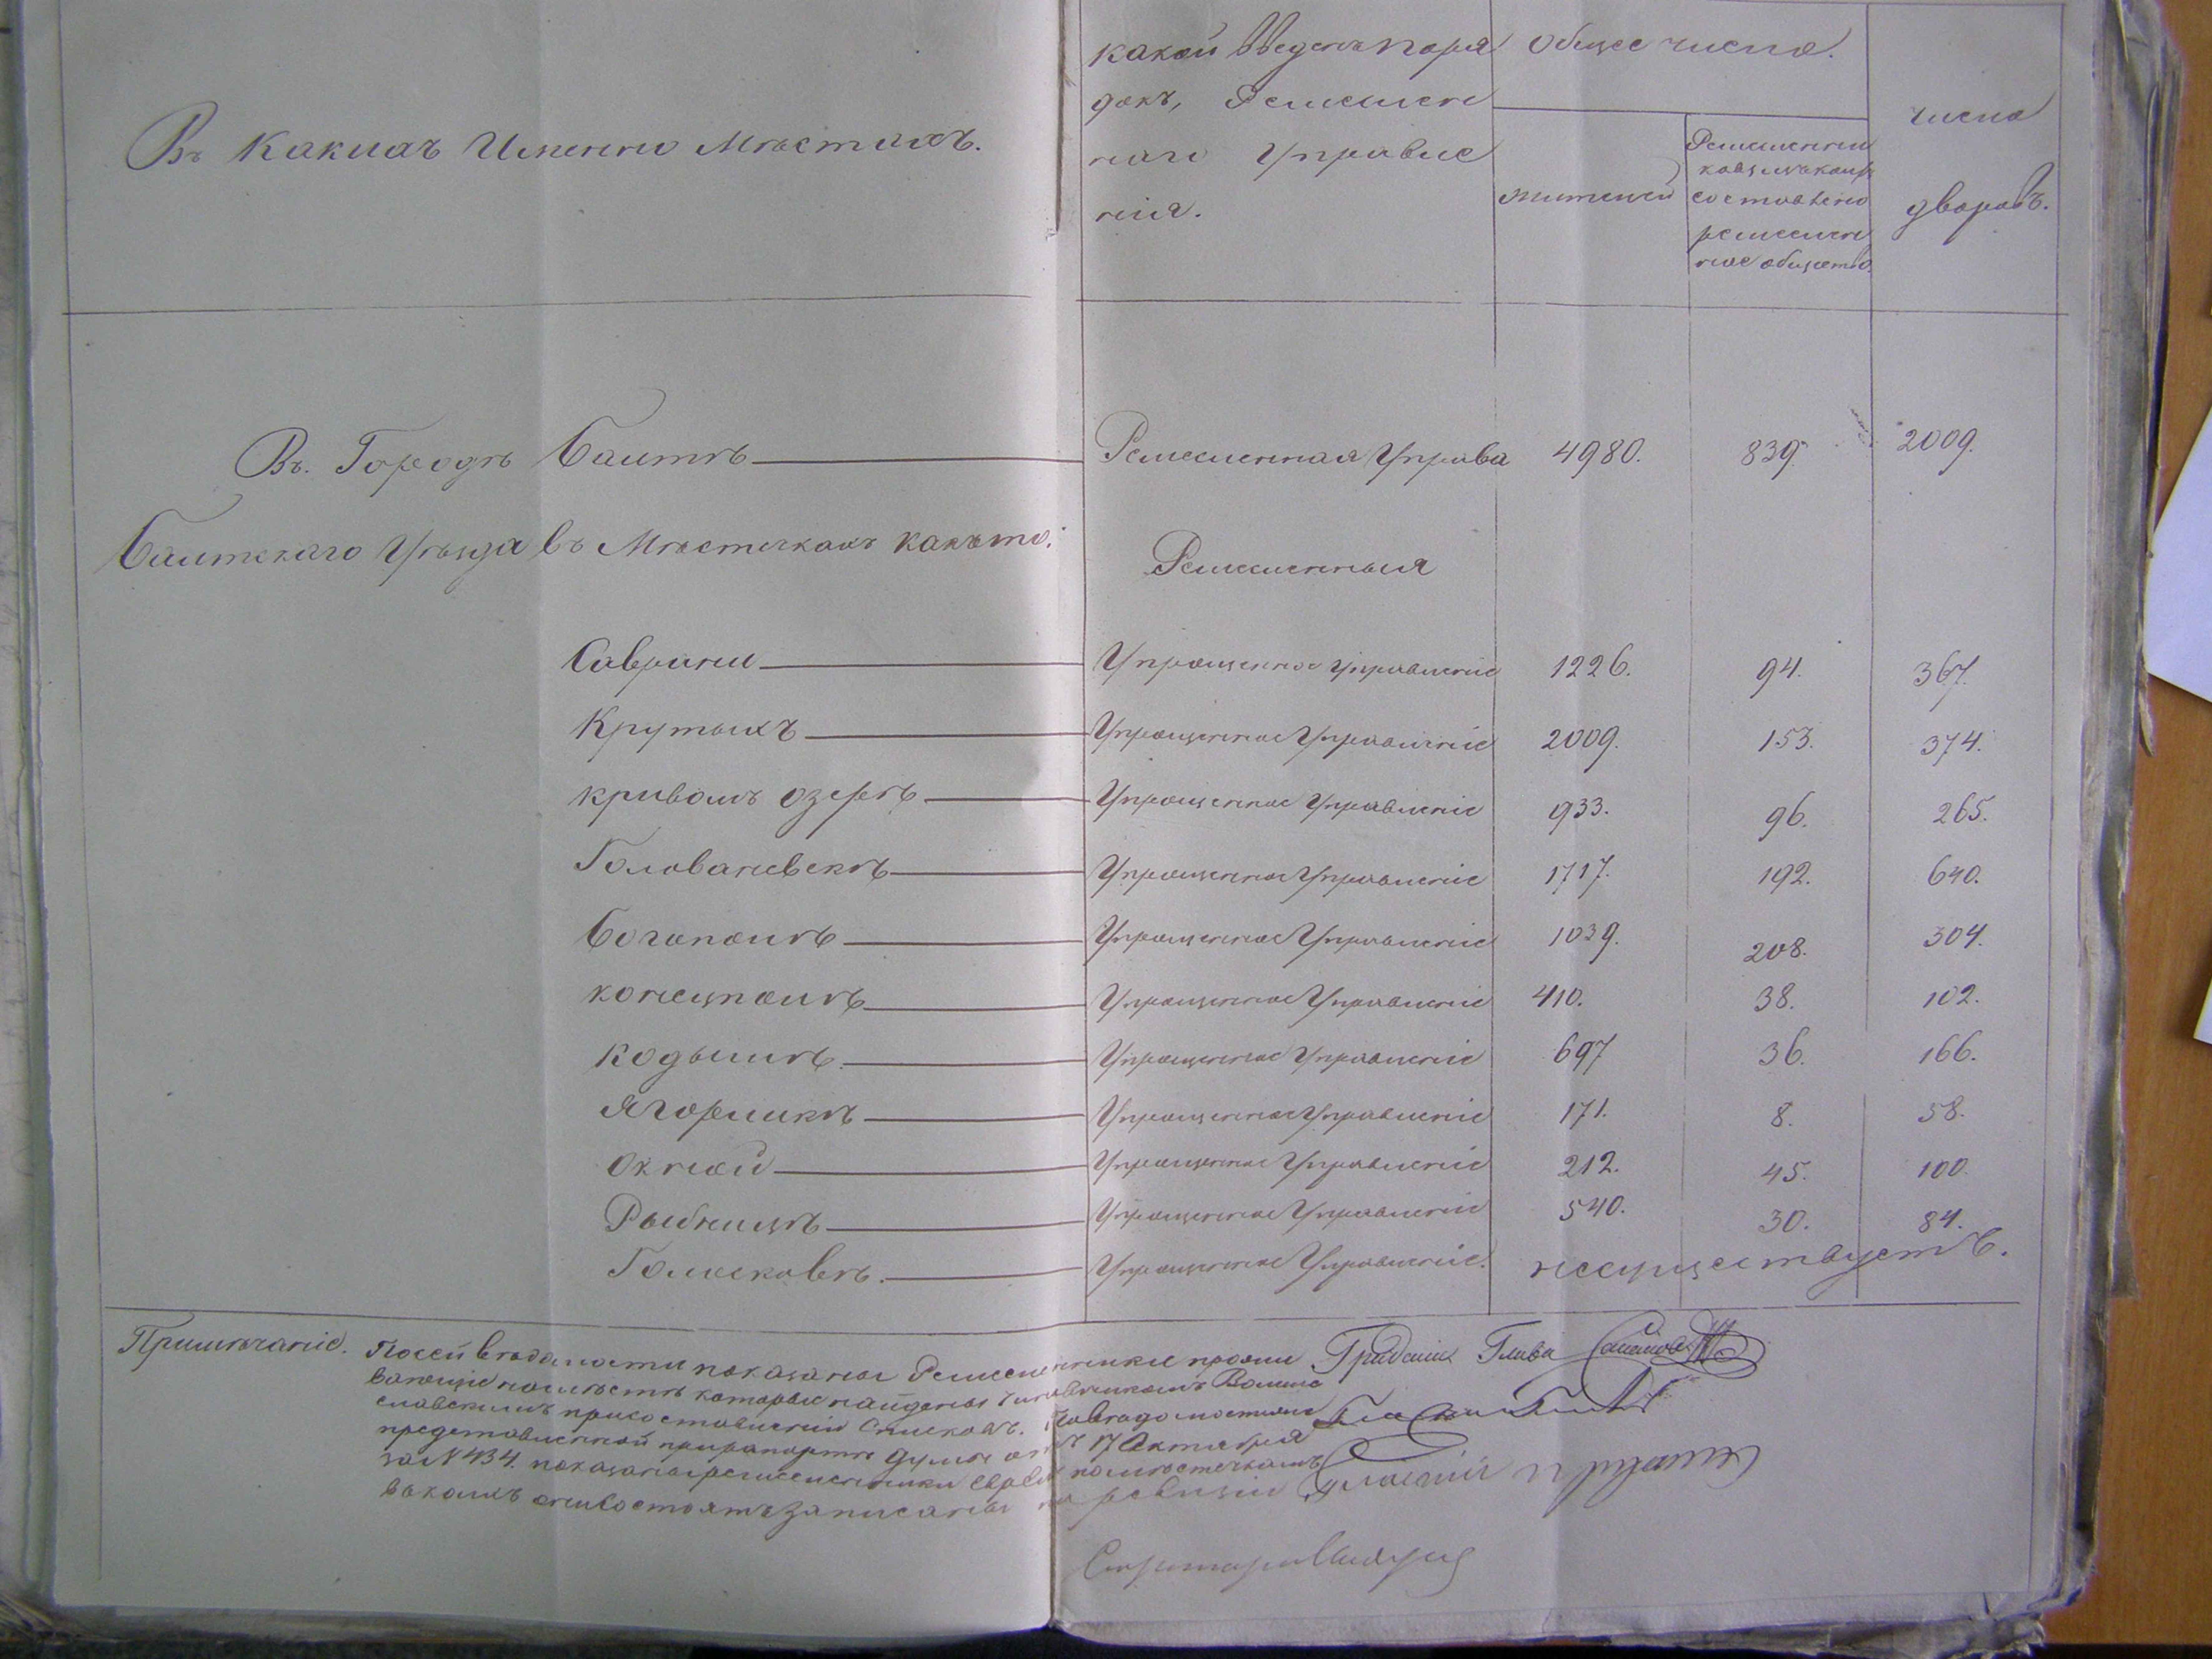 Въ Какихъ Именно Мѣстахъ.
какой Введенъ поря
докъ, Ремеслен
наго Управле
нія.
Общее число.
жителей
Ремесленни
ковъ изъ коихъ
составлено
ремеслен
ное общество.
число
дворовъ.
Въ. Городѣ Балтѣ Ремесленная Управа 4980. 839. 2009.
Балтскаго Уѣзда въ Мѣстечкахъ какъ то:
Ремесленныя
Саврани Упрощенное Управленіе 1226. 94. 367.
Крутыхъ Упрощенное Управленіе 2009. 153. 374.
Кривомъ озерѣ Упрощенное Управленіе 933. 96. 265.
Голованевскѣ Упрощенное Управленіе 1717. 192. 640.
Богополѣ Упрощенное Управленіе 1039. 208. 304.
Конецполѣ Упрощенное Управленіе 410. 38. 102.
Кодымѣ Упрощенное Управленіе 697 36. 166.
Ягорлыкѣ Упрощенное Управленіе 171. 8. 58.
Окной Упрощенное Управленіе 212. 45. 100.
Рыбницѣ Упрощенное Управленіе 540. 30. 84.
Голосковѣ. Упрощенное Управленіе. несуществуетъ.
Примѣчаніе. По сей вѣдомости показаны Ремесленники прожи
вающіе на мѣстѣ которые найдены Чиновникомъ
славскимъ при составленіи Списковъ. По вѣдомостямъ
представленной при рапортѣ Думы отъ 17 Октября
за N 434. показаны ремесленники Евреи по мѣстечкамъ
въ коихъ они состоятъ записаны по ревизіи
Градскій Глава
Гласный
Секретарь